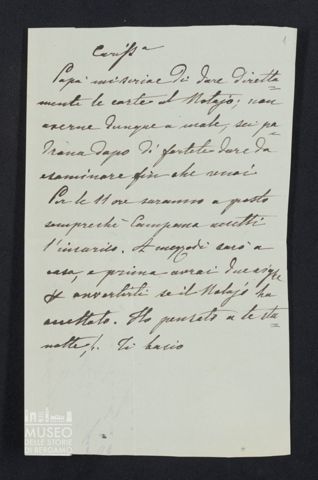 1
Cariss.a
Papà mi scrive di dare diretta=
mente le carte al Notajo, non
averne dunque a male, sei pa=
drona dopo di fartele dare da
esaminare fin che vuoi
Per le 11 ore saranno a posto
sempreché Campana accetti
l'incarico. A mezzodì sarò a
casa, e prima avrai due righe
avvertirti se il Notajo ha
accettato. Ho pensato a te sta
notte,!. Ti bacio
MUSEO
DELLE STORIE
DI BERGAMO